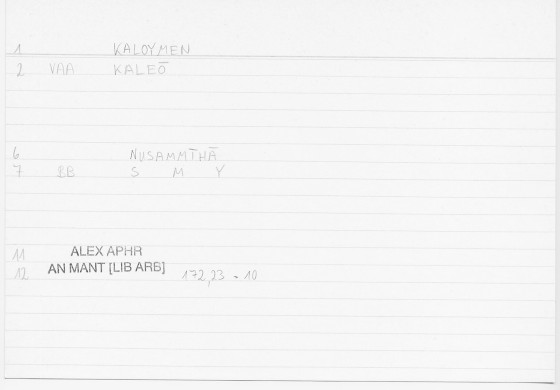 1 KALOYMEN
2 VAA KALEŌ
6 NUSAMMIHĀ
7 BB S M Y
11 ALEX APHR
12 AN MANT [LIB ARB] 172,23 - 10